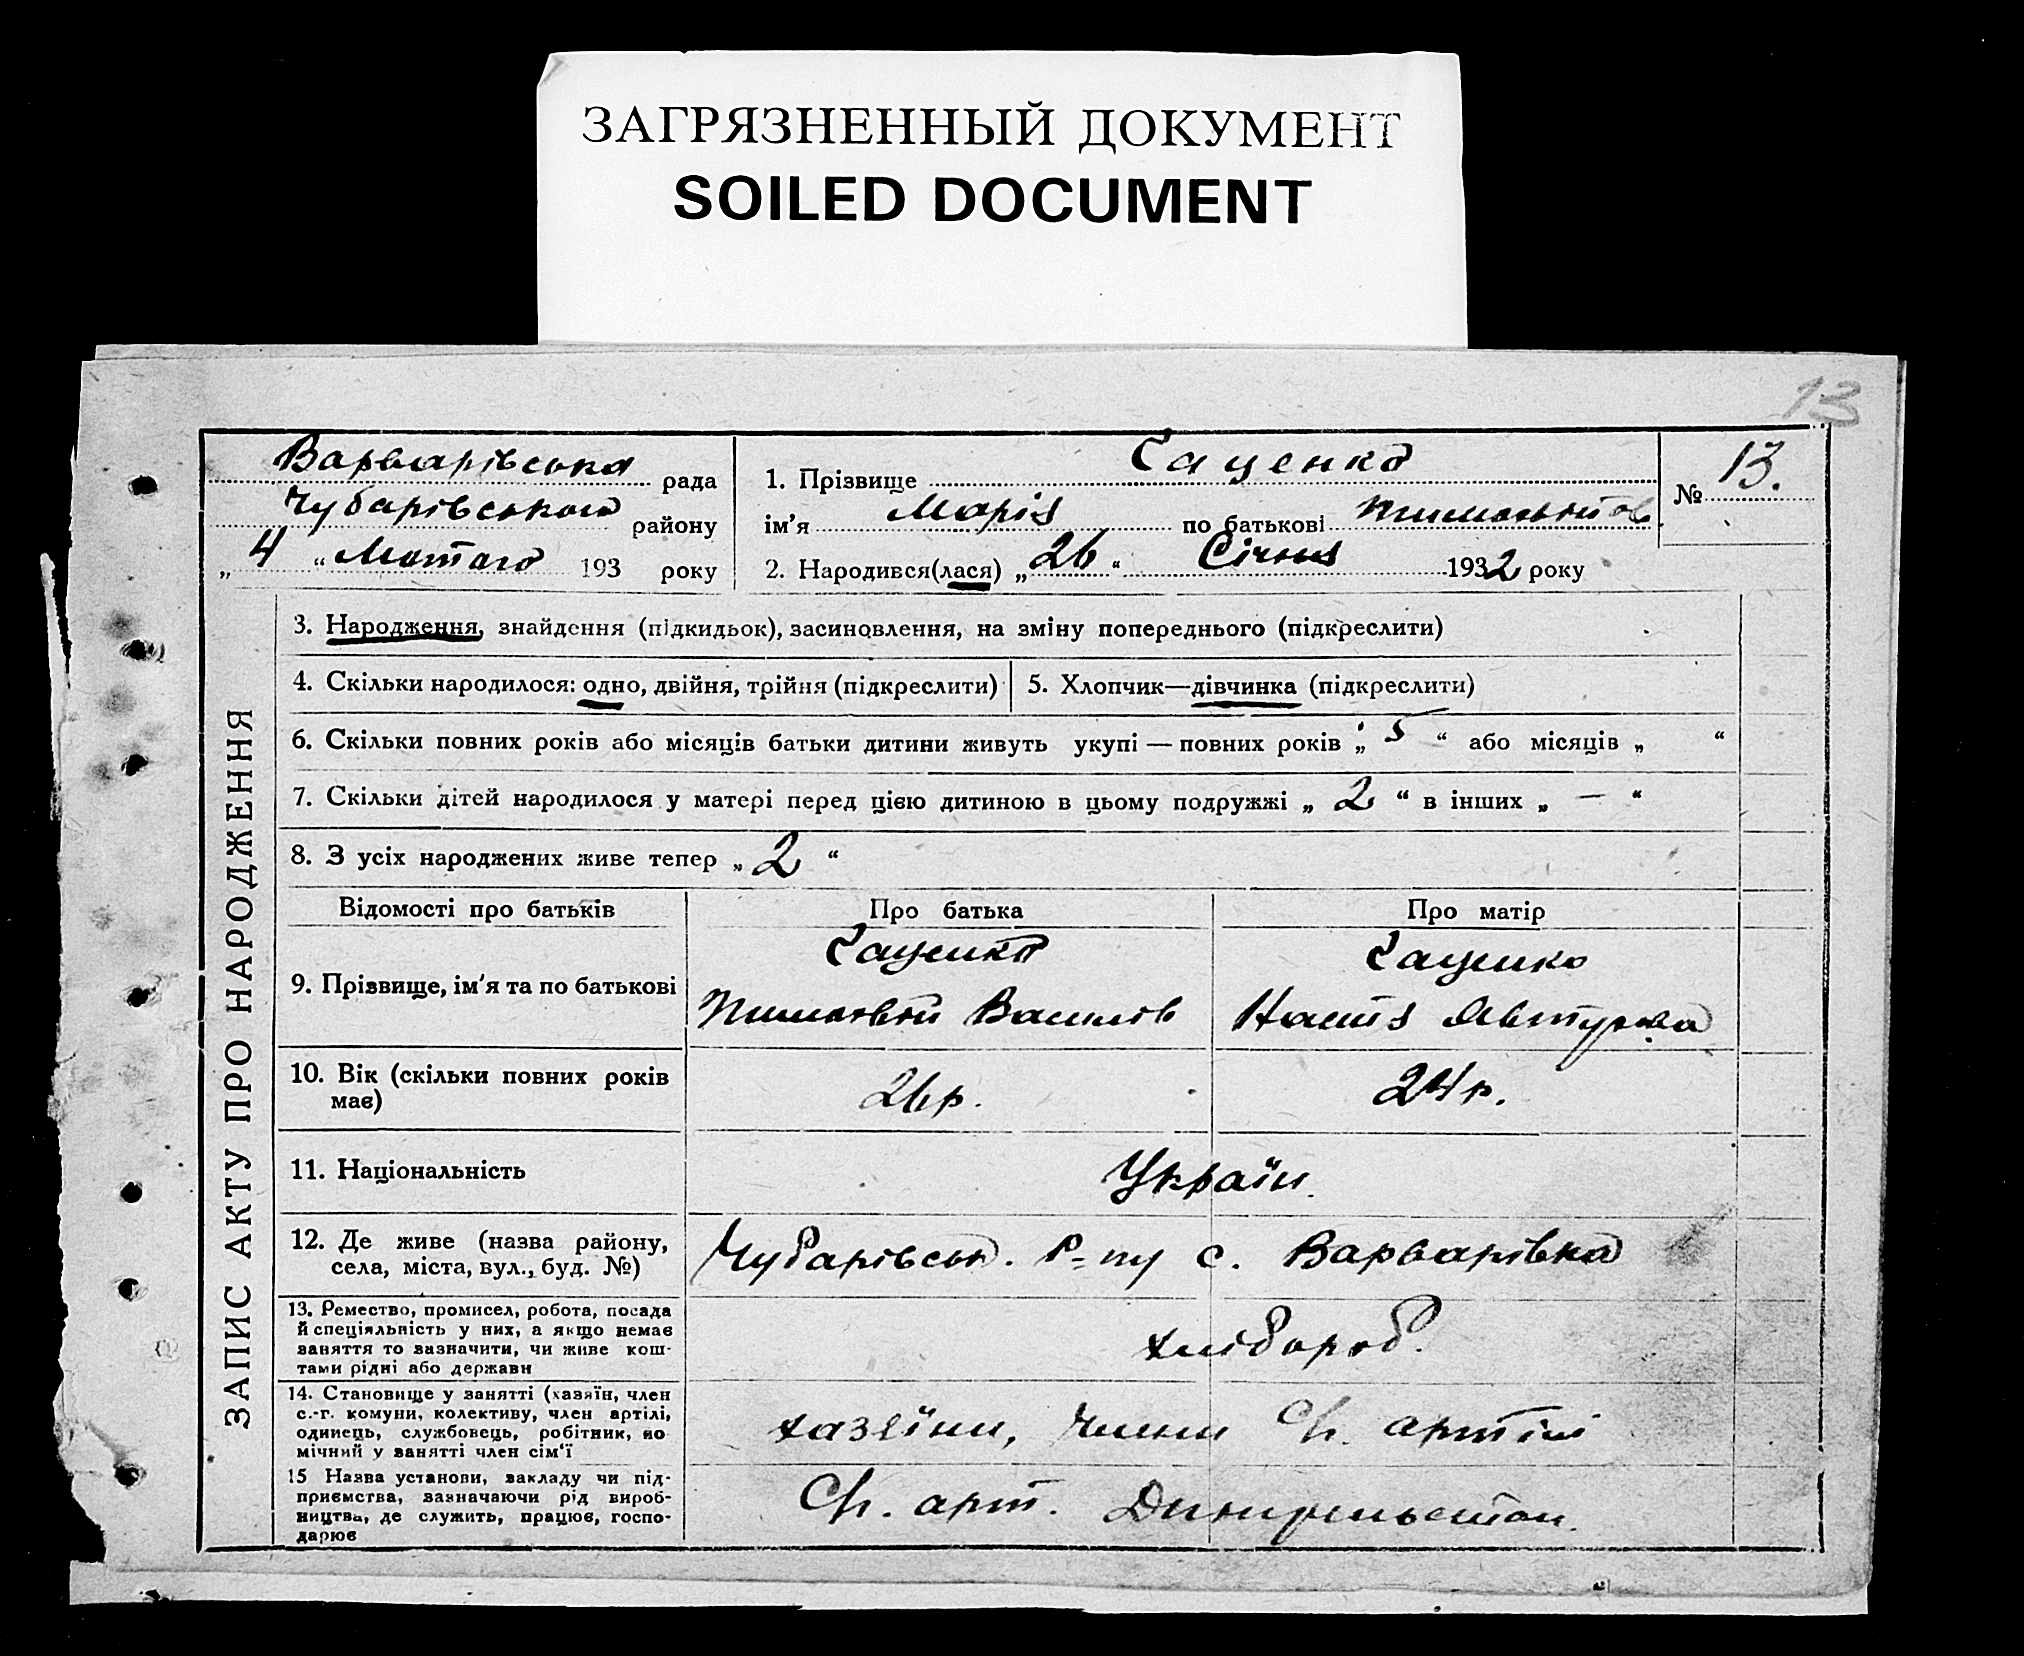 ЗАГРЯЗНЕННЫЙ ДОКУМЕНТ
SOILED DOCUMENT
13
Варварівська рада
Чубарівського району
„ 4 “ Лютого 193 року
1. Прізвище Саценко
ім'я Марія по батькові
№ 13.
2. Народився(лася) „ 26 “ Січня 1932 року
ЗАПИС АКТУ ПРО НАРОДЖЕННЯ
3. Народження, знайдення (підкидьок), засиновлення, на зміну попереднього (підкреслити)
4. Скільки народилося: одно, двійня, трійня (підкреслити) 5. Хлопчик—дівчинка (підкреслити)
6. Скільки повних років або місяців батьки дитини живуть укупі — повних років „ 5 “ або місяців „ “
7. Скільки дітей народилося у матері перед цією дитиною в цьому подружжі „ 2 “ в інших „ — “
8. З усіх народжених живе тепер „ 2 “
Відомості про батьків Про батька Про матір
9. Прізвище, ім'я та по батькові
Саценко Саценко
Василів Настя
10. Вік (скільки повних років
має)
26 р. 24 р.
11. Національність Україн.
12. Де живе (назва району,
села, міста, вул., буд. №)
Чубарівськ. Р-ну с. Варварівка
13. Ремество, промисел, робота, посада
й спеціяльність у них, а якщо немає
заняття то зазначити, чи живе кош-
тами рідні або держави
хлібороб.
14. Становище у занятті (хазяїн, член
с.-г. комуни, колективу, член артілі,
одинець, службовець, робітник, по
мічний у занятті член сім'ї
хазяїни, члени Сг. артілі
15 Назва установи, закладу чи під-
приємства, зазначаючи рід вироб-
ництва, де служить, працює, госпо-
дарює
Сг. арт.